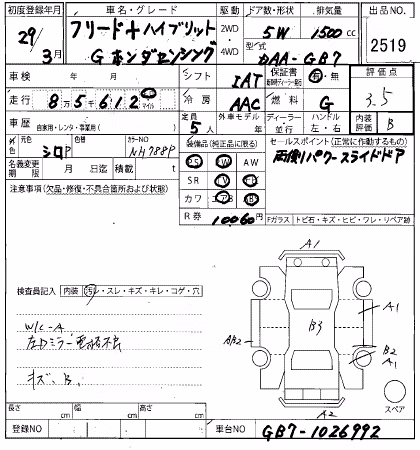 初度登録年月 車名・グレード 駆動 ドア数・形状 排気量 出品NO.
29/3月 フリード+ハイブリット 2WD・4WD 5W 1500cc 2519
G ホンダセンシング 型式 DAA-GB7
車検 年 月 シフト IAT 保証書 有・無 評価点
走行 8万5千612 マイル 冷房 AAC 燃料 G 3.5
車歴 自家用・レンタ・事業用( ) 定員 5人 外車モデル 年 ディーラー・並行 ハンドル 左・右 内装評価 B
外色 元色 シロP 色替 カラーNO NH788P 装備品(純正品に限る) セールスポイント(正常に作動するもの)
名義変更期限 月 日迄 積算 月 PS AW 両側パワースライドドア
注意事項(欠品・修復・不具合箇所および状態) SR TV
カワ エアB
R券 10060円 Fガラス トビ石・キズ・ヒビ・ワレ・リペア跡
A1
検査員記入 内装 汚レ・スレ・キズ・キレ・コゲ・穴
A1
B3
W/C-A
AB2
左Dミラー電格不良
B2
A1
キズ、B.
スペア
A2
長さ cm 幅 cm 高さ cm
登録NO 車台NO GB7-1026992